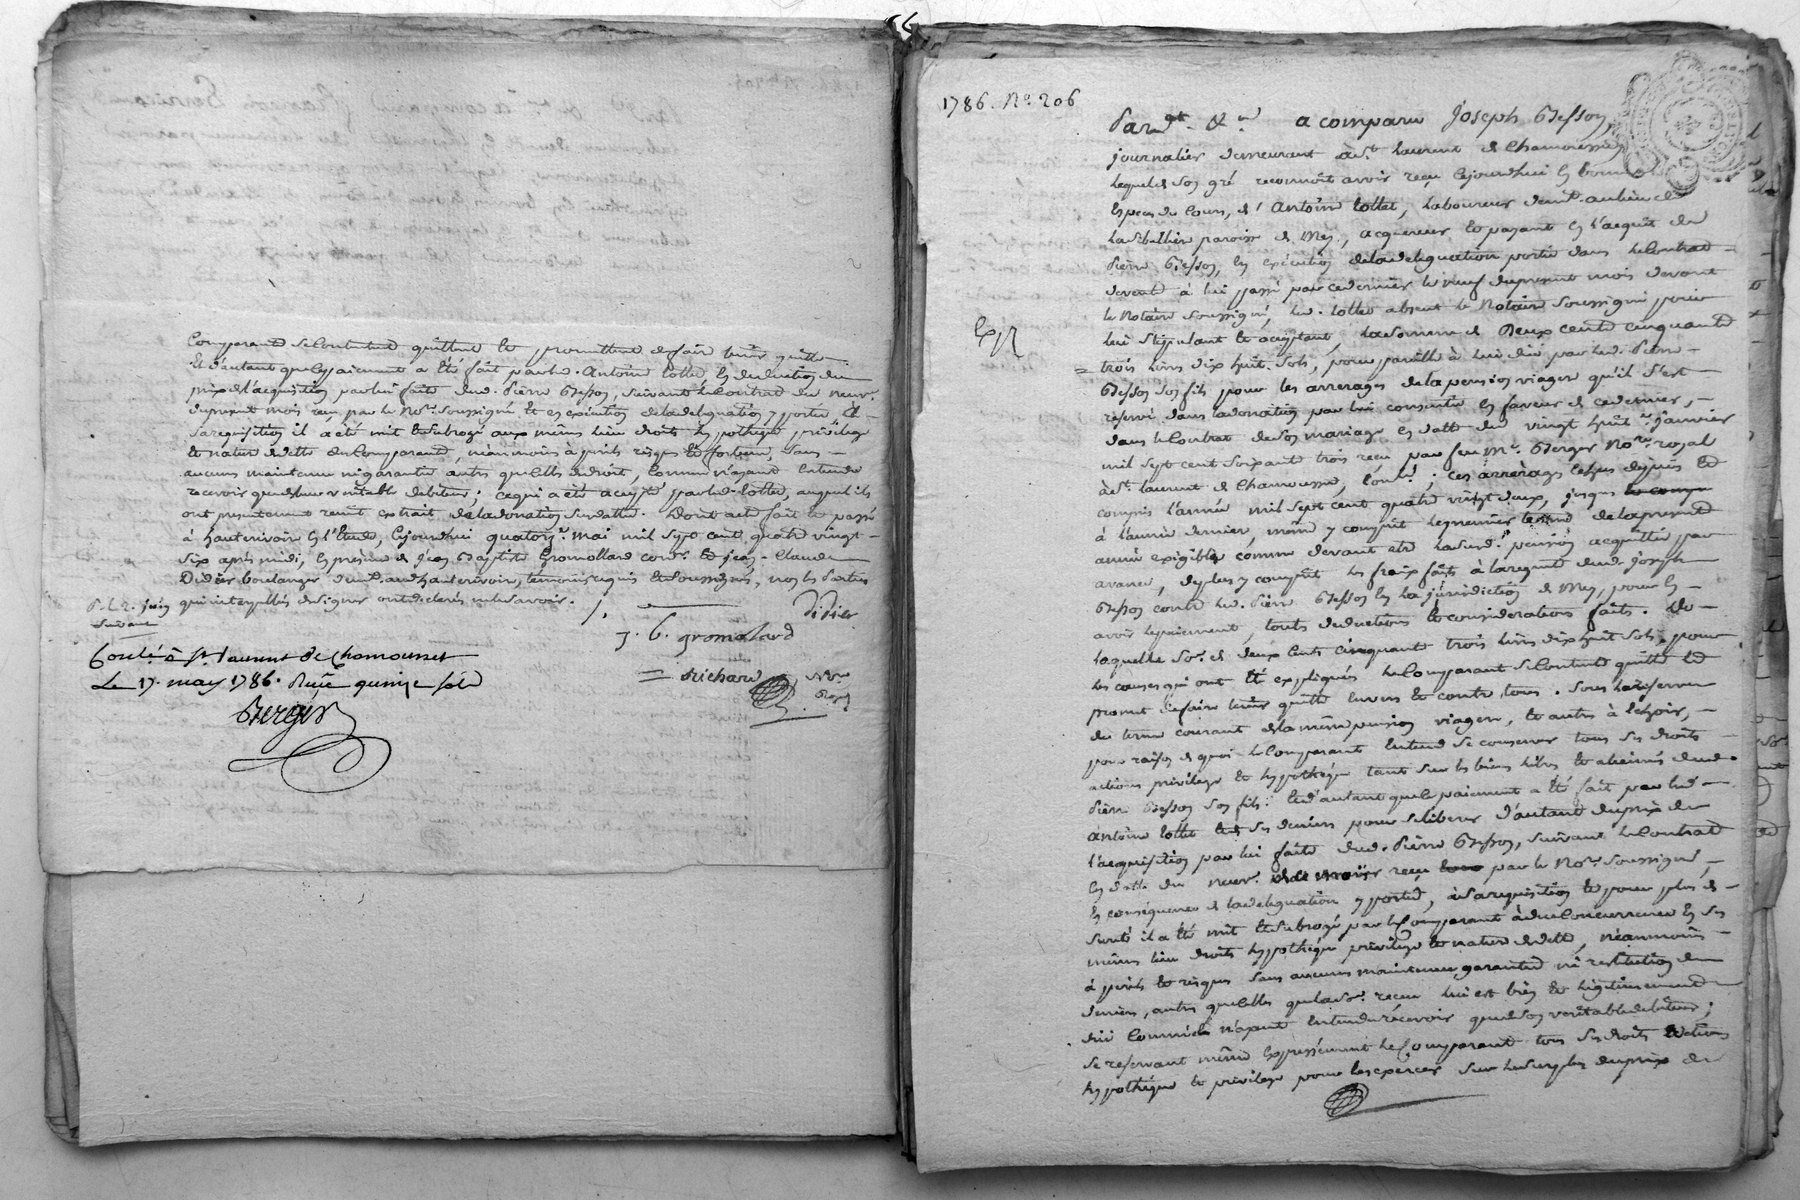 comparant se contentent quittent et promettent defaire tenir quitte.
Et d'autant que le paiement a été fait par led. Antoine Collet, en deduction du
prix de l'acquisition par lui faite dud. Pierre Besson, suivant le Contrat du neuf.
du present mois reçu par le No.re soussigné et en exécution de la deleguation y portée à
sa requisition il a été mit et subrogé aux mêmes lieu droits hypotheque privilege
et nature de dette du Comparant, néanmoins à perils risques et fortune, sans
aucune maintenue ni garantie autre que celle de droit, comme n'ayant entendu
recevoir que de leur veritable debiteur; ce qui a été accepté par led. Collet, auquel ils
ont presentement remit extrait de la donation susdatte. Dont acte fait et passé
à hauterivoire en l'Etude, cejourdhui quatorz.e mai mil sept cent quatre vingt
six après midi, en présence de Jean Baptiste Gromollard cord.r et Jean Claude
Didier boulanger dem.t aud. hauterivoire, temoins requis et soussignés, non les parties
qui interpellées de signer ont declarés ne le savoir.
P.l. 2. juin
suivant
Didier
J. B. gromolard
Richard No.re Royal
Conté à St. Laurent de Chamousset
Le 17. may 1786. Reçu quinze sols
Berger
1786. No. 206
Pard.t &.a a comparu Joseph Besson,
journalier demeurant à St. Laurent de Chamousset
lequel de son gré reconnoit avoir reçu cejourdhui en bonnes
Especes du Cours, d'Antoine Collet, laboureur dem.t au lieu de
paroisse de Mey, acquereur et payant en l'acquit de
Pierre Besson, en exécution de la deleguation portée dans le Contrat
de vente à lui passé par ce dernier le neuf du present mois devant
le Notaire soussigné, led. Collet absent le Notaire soussigné pour
lui stipulant et acceptant, la somme de Deux cent cinquante
trois livres dix huit sols, pour pareille à lui due par led. Pierre
Exp.
Besson son fils pour les arrerages de la pension viagere qu'il s'est
réservé dans la donation par lui consentie en faveur de ce dernier,
dans le Contrat de son mariage en datte du vingt huit.e janvier
mil sept cent soixante trois reçu par feu M.e Berger No.re royal
à St. Laurent de Chamousset, Conté; ces arrérages échus depuis et
compris l'année mil sept cent quatre vingt deux, jusques
à l'année dernier, même y comprit le premier terme de la presente
année exigible comme devant etre lad. pension acquittée par
avance, de plus y comprit les fraix faits à la requete dud. Joseph
Besson contre led. Pierre Besson en la jurisdiction de Mey, pour en
avoir le paiement, toutes deductions et considerations faites. De
laquelle So.e de deux cents cinquante trois livres dix huit sols, pour
les causes qui ont été expliquées le Comparant se contente quitte et
promet defaire tenir quitte envers et contre tous. Sous la réserve
du terme courant de la même pension viagere, et autres à échoir,
pour raison de quoi le Comparant entend se conserver tous ses droits
actions privilege et hypotheque tant sur les biens libres et alienés dud.
Pierre Besson son fils. Et d'autant que le paiement a été fait par led.
Antoine Collet de ses deniers pour se liberer d'autant du prix de
l'acquisition par lui faite dud. Pierre Besson, suivant le Contrat
en datte du neuf. de ce mois reçu par le No.re soussigné,
en conséquence de la deleguation y portée, à sa requisition et pour plus de
sureté il a été mit et subrogé par le Comparant à due Concurrence en ses
mêmes lieu droits hypotheque privilege et nature de dette, néanmoins
à perils et risques sans aucune maintenue garantie ni restitution de
deniers, autre que celle que la So.e reçue lui est bien et legitimement
due comme n'ayant entendu recevoir que de son veritable debiteur;
se reservant même expressément le Comparant tous ses droits et actions
hypotheque et privilege pour les exercer sur le surplus du prix de